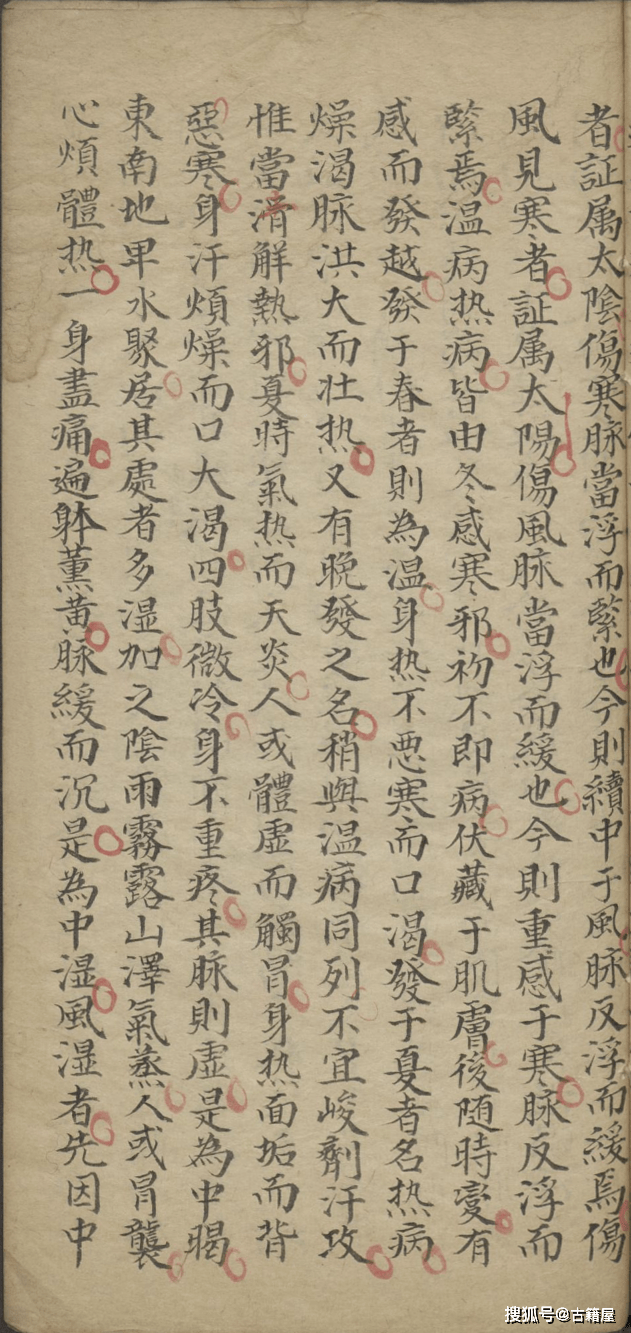 者証属太陰傷寒脉當浮而緊也今則續中于風脉反浮而緩焉傷
風見寒者証属太陽傷風脉當浮而緩也今則重感于寒脉反浮而
緊焉温病热病皆由冬感寒邪初不即病伏藏于肌膚後随時變有
感而發越發于春者則為温身热不悪寒而口渴發于夏者名热病
燥渴脉洪大而壮热又有晚發之名稍與温病同列不宜峻劑汗攻
惟當滑解熱邪夏時氣热而天炎人或體虚而觸冒身热面垢而背
惡寒身汗煩燥而口大渴四肢微冷身不重疼其脉則虚是為中暍
東南地卑水聚居其處者多湿加之陰雨霧露山澤氣蒸人或冐襲
心煩體热一身盡痛遍躰薫黄脉緩而沉是為中湿風湿者先因中
搜狐号@古籍屋